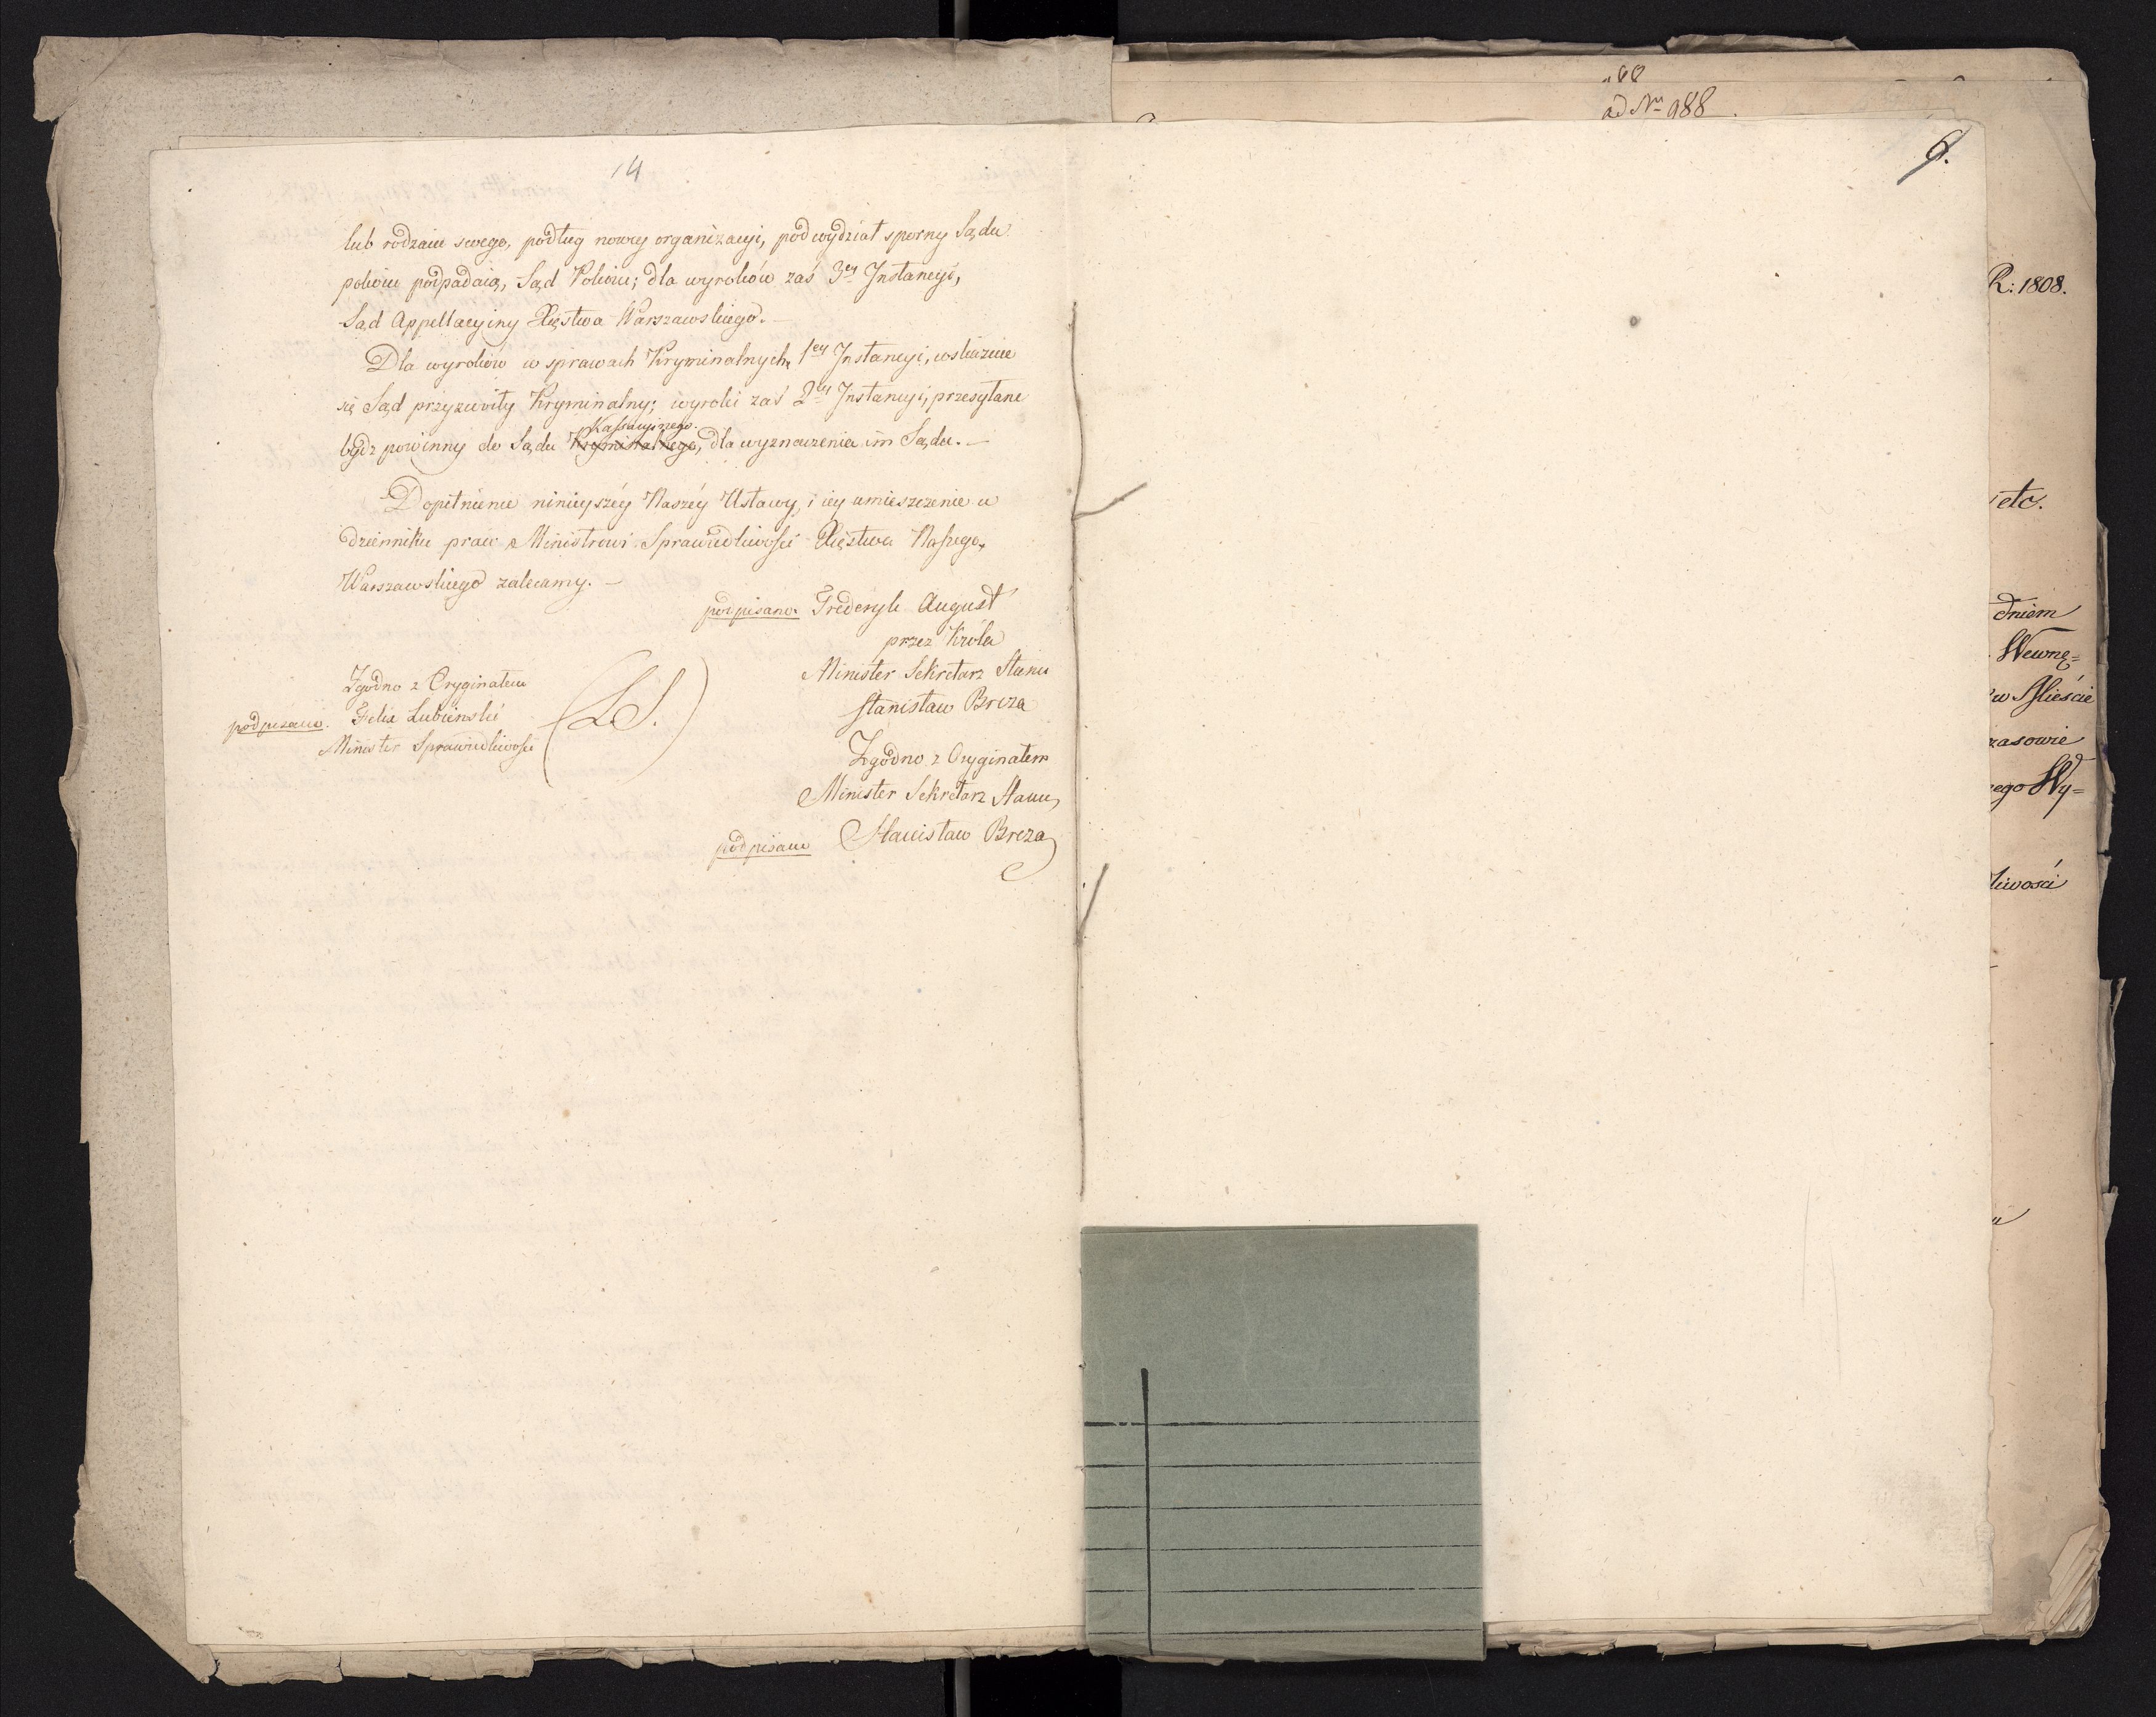 14
lub rodzaiu swego, podług nowey organizacyi, pod wydział sporny Sądu
pokoiu podpadaią, Sąd Pokoiu; dla wyroków zaś 3ey Instancyi,
Sąd Appellacyiny Xięstwa Warszawskiego. —
Dla wyroków w sprawach Kryminalnych, 1ey Instancyi, wskazuie
się Sąd przyzwoity Kryminalny; wyroki zaś 2ey Instancyi, przesyłane
Kassacyinego.
bydź powinny do Sądu Kryminalnego, dla wyznaczenia im Sądu. —
Dopełnienie ninieyszéy Naszéy Ustawy, i iey umieszczenie w
dzienniku praw Ministrowi Sprawiedliwości Xięstwa Naszego
Warszawskiego zalecamy. —
podpisano. Frederyk August
przez Króla
Minister Sekretarz Stanu
Stanisław Breza
Zgodno z Oryginałem
podpisano. Felix Lubienski
Minister Sprawiedliwości
(LS.)
Zgodno z Oryginałem
Minister Sekretarz Stanu
podpisano Stanisław Breza
ad Nrm 988.
6.
R: 1808.
etc.
dniem
Wewnę=
w Mieście
zasowie
ego Wy=
liwości